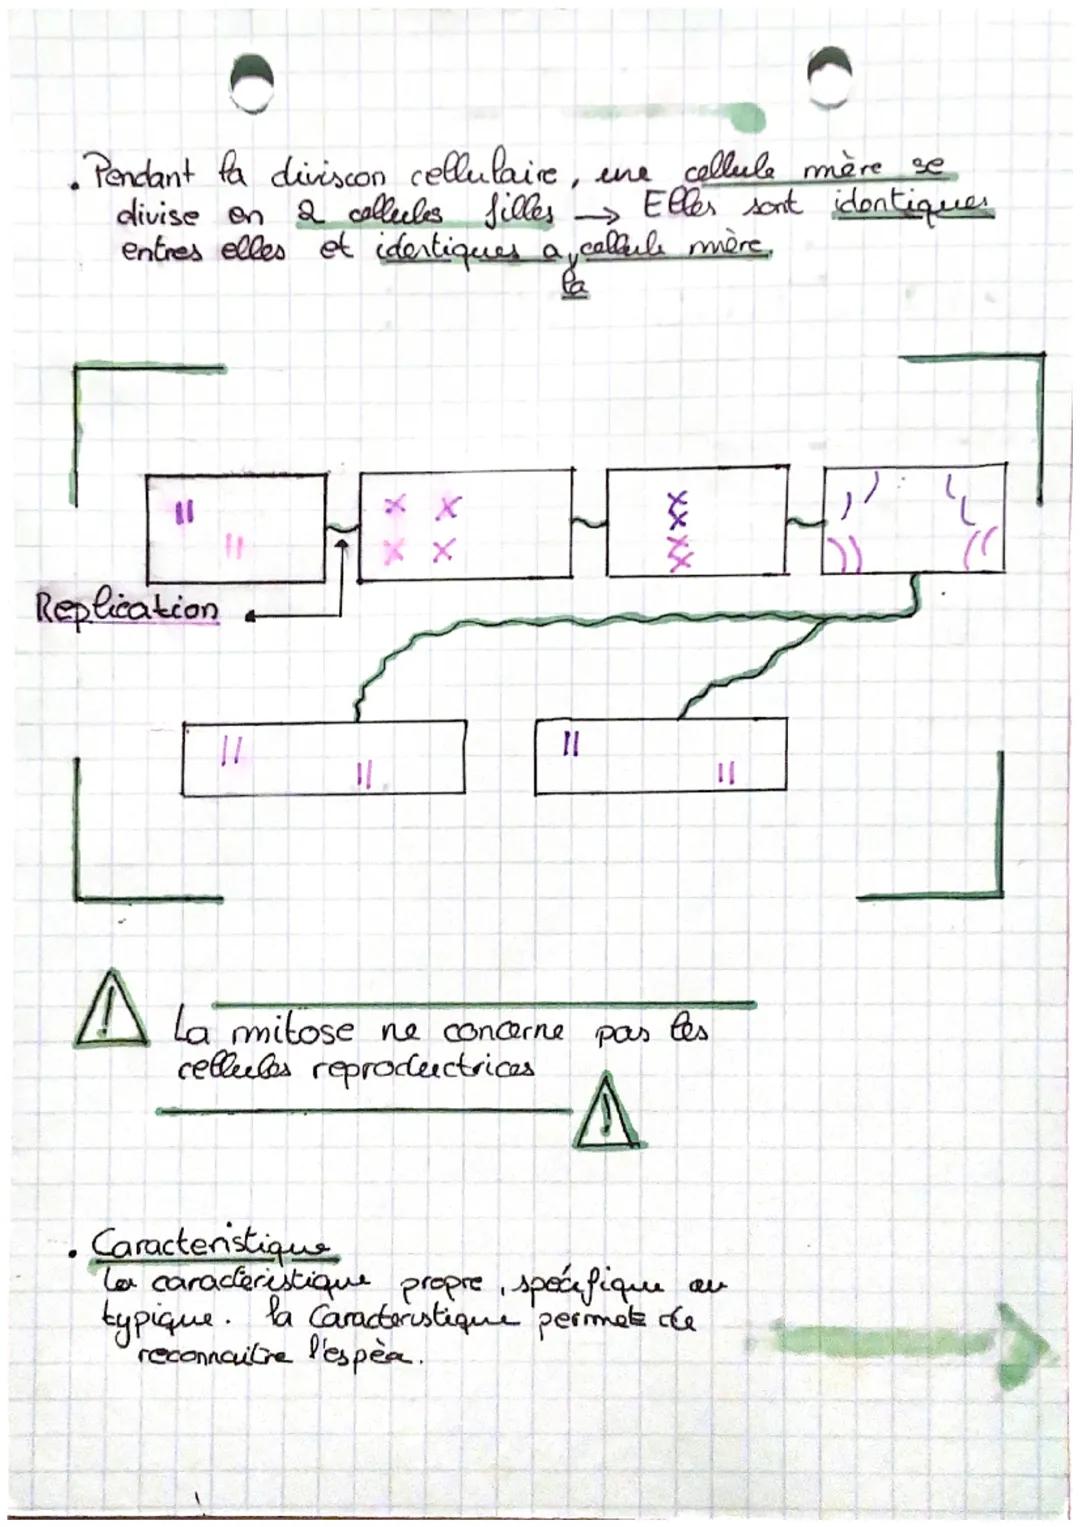 . Pendant la diviscon cellulaire, une cellule mère se
divise en 2 cellules filles → Elles sont identiques
entres elles et identiques a la cellule mère.
Replication
La mitose ne concerne pas les
cellules reproductrices
. Caracteristique
La caracteristique propre, spécifique ou
typique. la Caracteristique permet de
reconnaitre l'espèce.